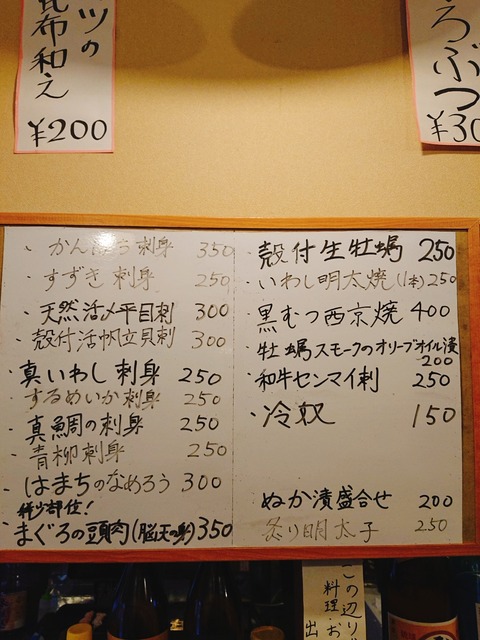 ツの
昆布和え
¥200
ろぶつ
¥30
・かんぱち刺身 350
・すずき刺身 250
・天然活〆平目刺 300
・殻付活帆立貝刺 300
・真いわし刺身 250
・するめいか刺身 250
・真鯛の刺身 250
・青柳刺身 250
・はまちのなめろう 300
希少部位!
・まぐろの頭肉(脳天の刺) 350
・殻付生牡蠣 250
・いわし明太焼(1本) 250
・黒むつ西京焼 400
・牡蠣スモークのオリーブオイル漬 200
・和牛センマイ刺 250
・冷奴 150
ぬか漬盛合せ 200
炙り明太子 250
この辺り
料理・お
出